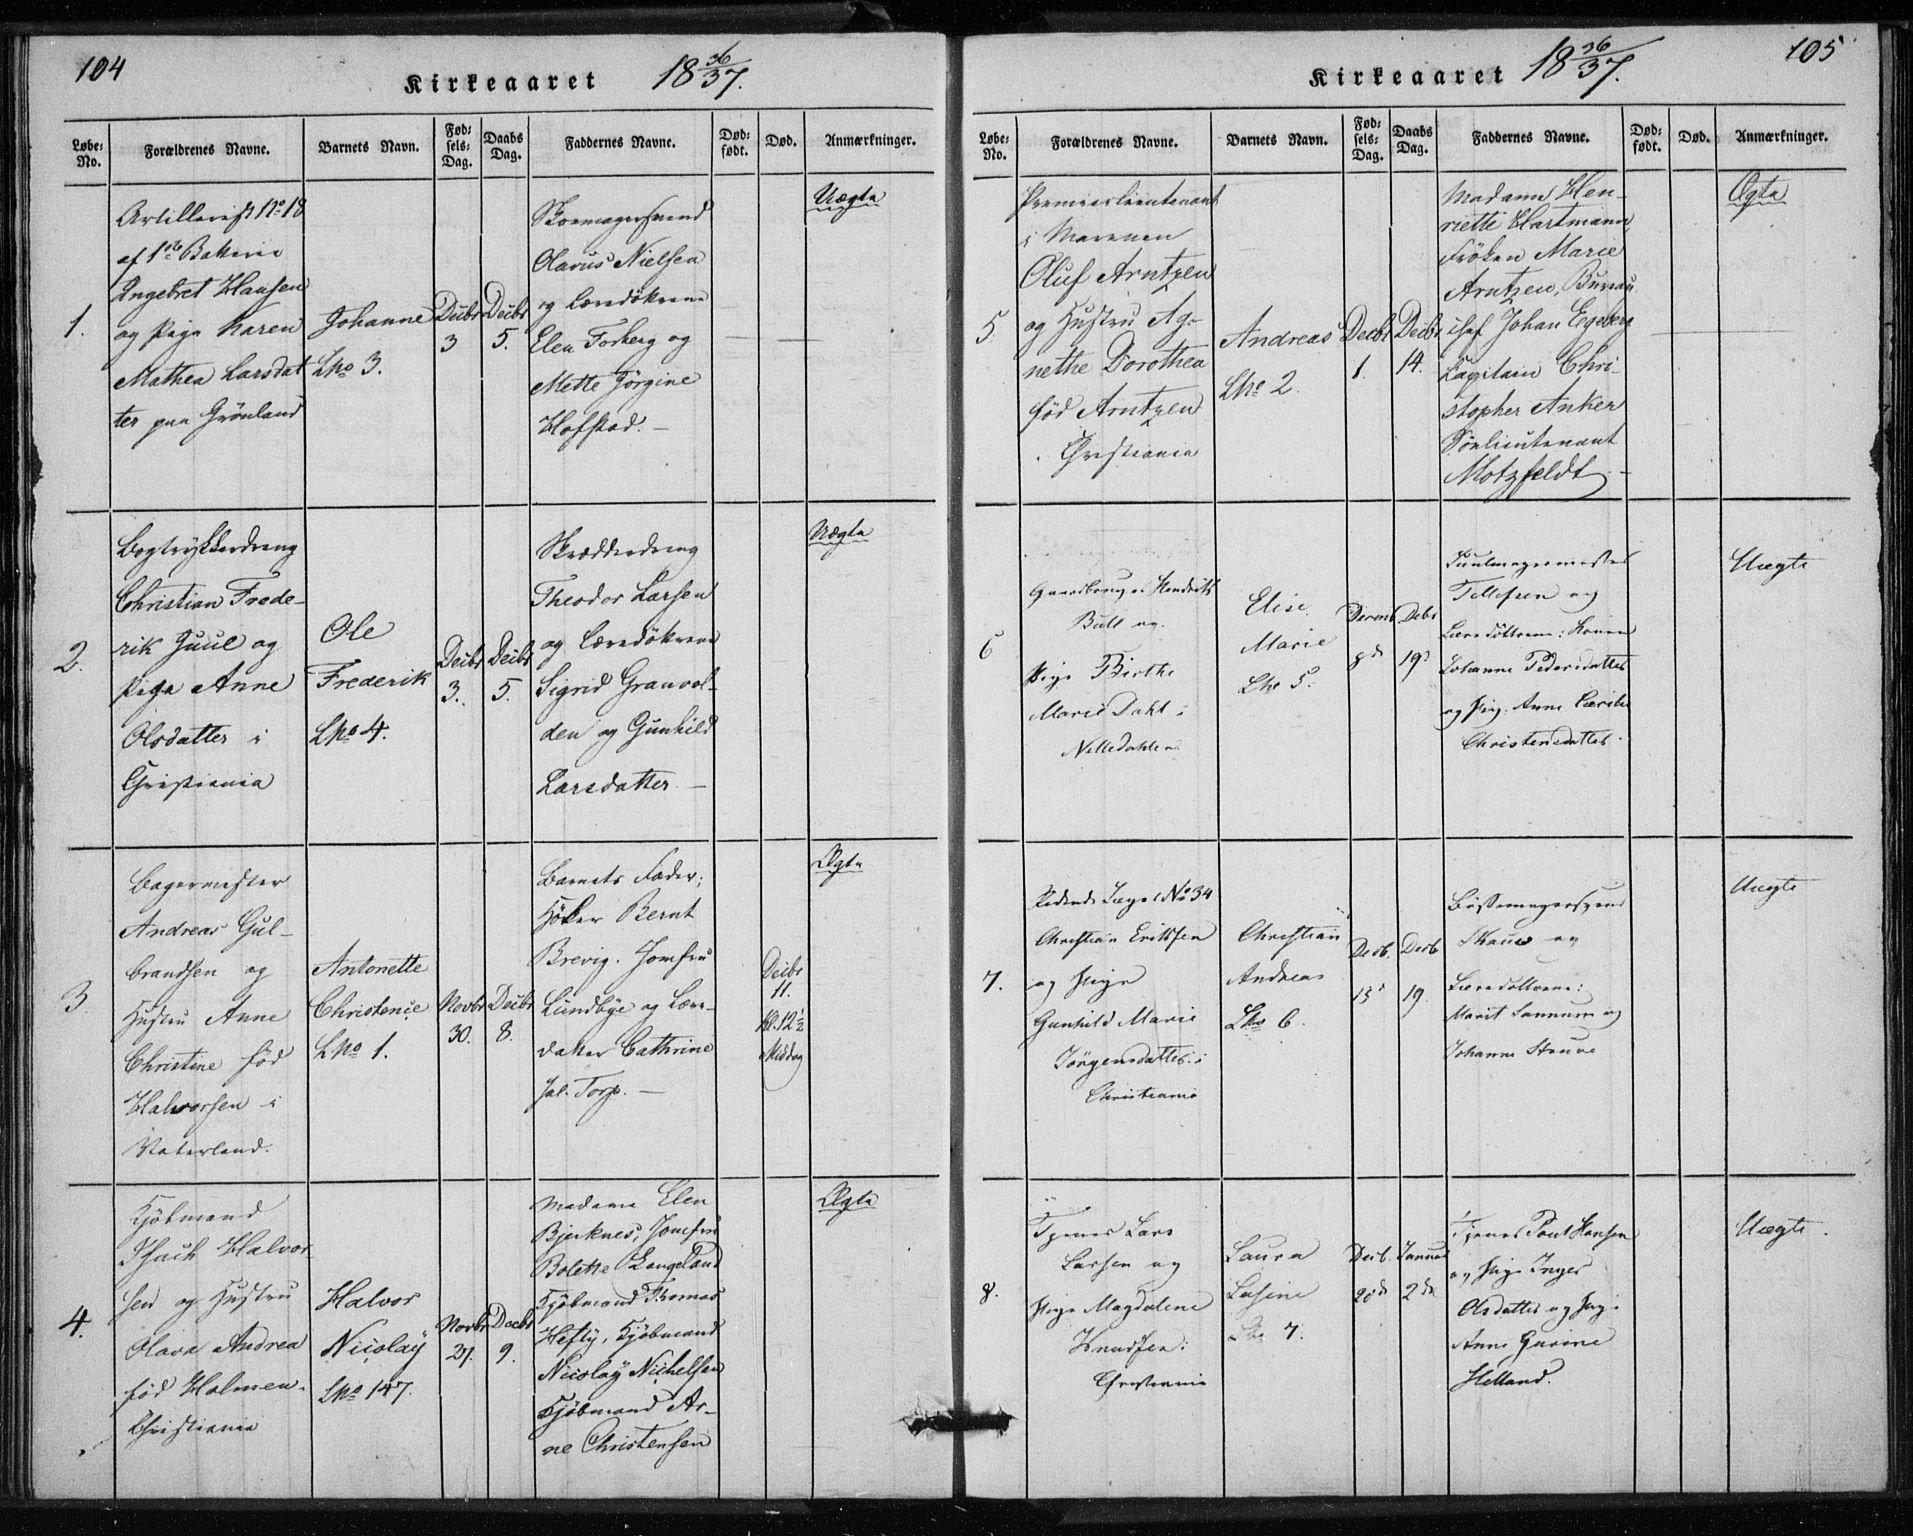 104
Kirkeaaret 18 36/37.
Løbe-No. Forældrenes Navne. Barnets Navn. Fødsels-Dag. Daabs Dag. Faddernes Navne. Dødfødt. Død. Anmærkninger.
1.
Artillerist No 18
af 1ste Batterie
Ingebret Hansen
og Pige Karen
Mathea Larsdat
ter paa Grönland
Johanne
LNo 3.
Decbr
3
Decbr
5.
Skomagersvend
Olavus Nielsen
og Læredökrene
Elen Forberg og
Mette Jörgine
Hofstad. –
Uægte
2.
Bogtrykkerdreng
Christian Frede-
rik Juul og
Pige Anne
Olsdatter i
Christiania
Ole
Frederik
LNo 4.
Decbr
3.
Decbr
5.
Skrædderdreng
Theodor Larsen
og Læredökrene
Sigrid Granvol-
den og Gunhild
Larsdatter. –
Uægte
3.
Bagermester
Andreas Gul-
brandsen og
Hustru Anne
Christine föd
Halvorsen i
Vaterland.
Antonette
Christence
LNo 1.
Novbr
30.
Decbr
8.
Barnets Fader,
Höker Bernt
Brevig. Jomfru
Lundbye og Lære-
daker Cathrine
Torp. –
Decbr
11.
Kl. 12½
Middag
Ægte
4.
Kjöbmand
Isach Halvor
sen og Hustru
Olava Andrea
föd Holmen.
Christiania
Halvor
Nicolay
LNo 147.
Novbr
27.
Decbr
9.
Madame Elen
Bjerknes, Jomfru
Bolette Langeland
Kjöbmand Thomas
Hefty, Kjöbmand
Nicolay Nichelsen
Kjöbmand Ar-
ne Christensen
Ægte
105
Kirkeaaret 18 36/37.
Løbe-No. Forældrenes Navne. Barnets Navn. Fødsels-Dag. Daabs Dag. Faddernes Navne. Dødfødt. Død. Anmærkninger.
5.
Premierlieutenant
i Marinen
Oluf Arntzen
og Hustru Ag-
nethe Dorothea
föd Arntzen
Christiania
Andreas
LNo 2.
Decbr
1.
Decbr
14.
Madame Hen-
riette Hartmann
Fröken Marie
Arntzen, Bureau
chef Johan Egeberg
Capitain Chri-
stopher Anker
Sölieutenant
Motzfeldt. –
Ægte
6
Gaardbruger Hendrik
Bull og
Pige Birthe
Marie Dahl i
Elise
Marie
LNo 5.
8de
Decbr
19
Tellefsen og
Johanne Pedersdatter
og Pig. Anne Cæcilie
Christensdatter.
Uægte
7.
No 34
Christian Eriksen
og Pige
Gunhild Marie
Jörgensdatter i
Christiania
Christian
Andreas
LNo 6.
Decb.
13
Decb
19.
Bössemagersvend
Skaue og
Læredöttrene:
Marit Sannum og
Johanne Skaue
Uægte
8.
Tjener Lars
Larsen og
Pige Magdalene
Knudsen i
Christiania
Laura
Lasine
LNo 7.
Decb.
20de
Januar
2den
Tjener Poul Hansen
og Pige Inger
Olsdatter og Pige
Anne Gurine
Helland.
Uægte.